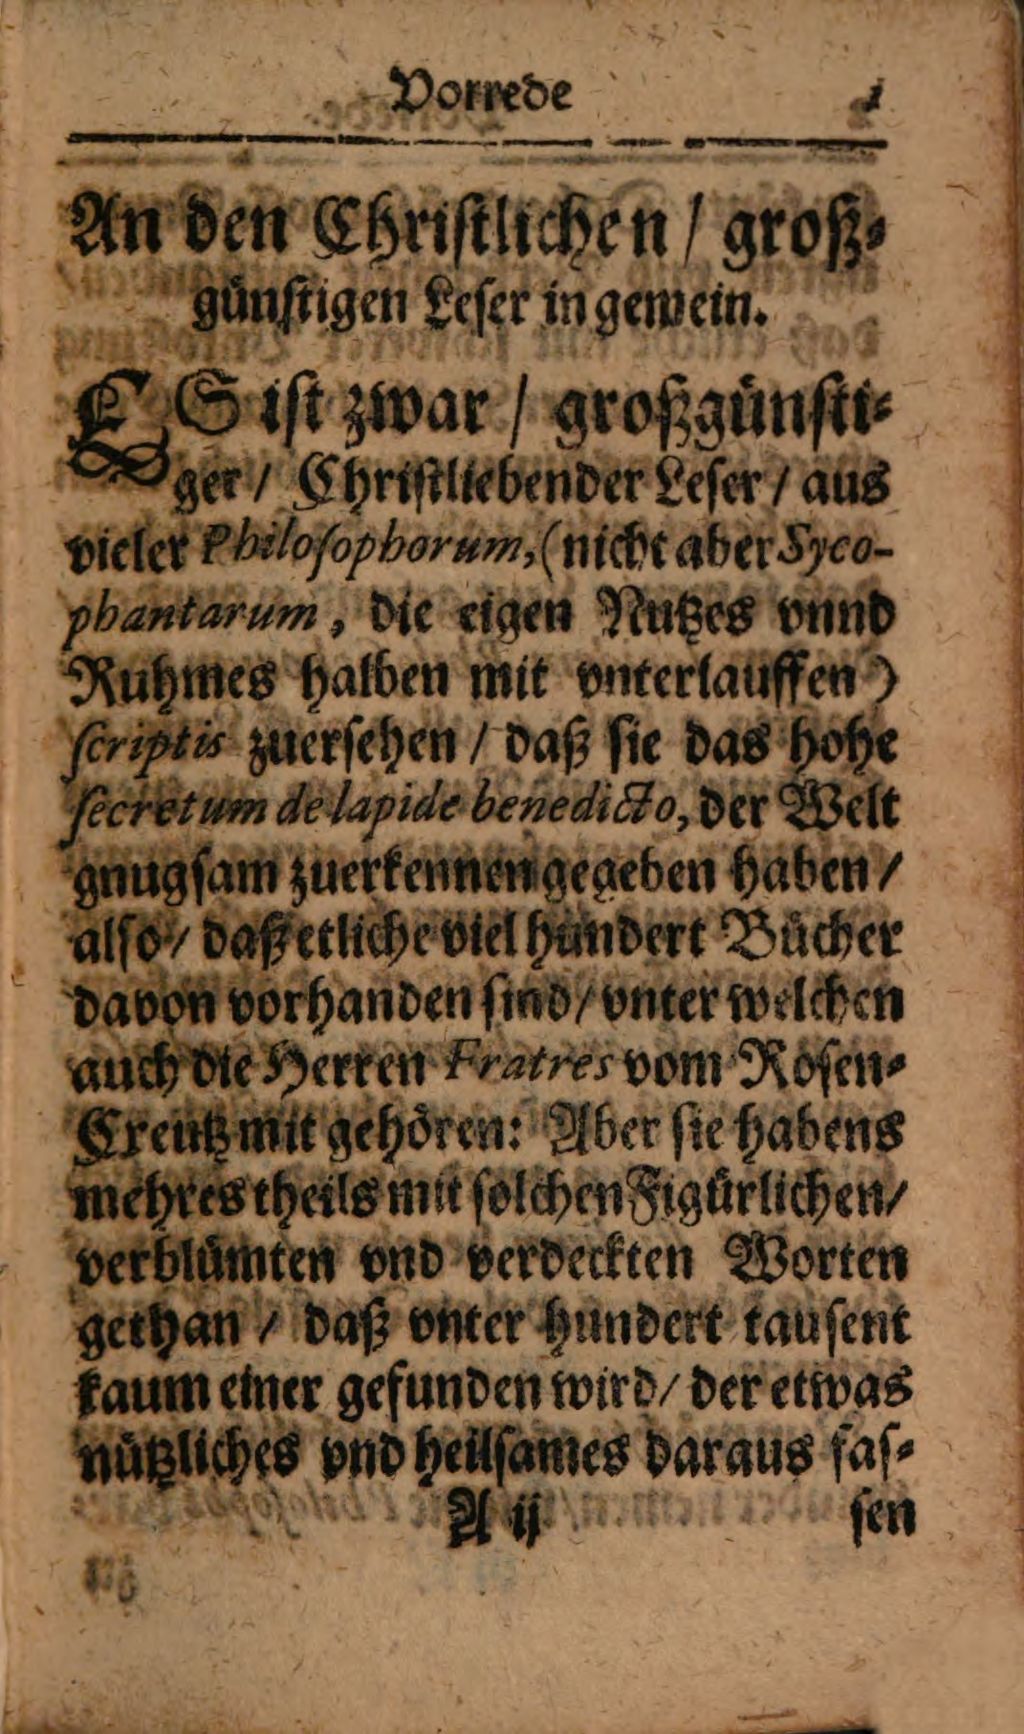 Vorrede 1
An den Chriſtlichen / groß⸗
günſtigen Leſer in gemein.
ES iſt zwar / großgünſti⸗
ger / Chriſtliebender Leſer / aus
vieler Philoſophorum, (nicht aber Syco-
phantarum, die eigen Nutzes vnnd
Ruhmes halben mit vnterlauffen)
ſcriptis zuerſehen / daß ſie das hohe
ſecretum de lapide benedicto, der Welt
gnugſam zuerkennen gegeben haben /
alſo / daß etliche viel hundert Bücher
davon vorhanden ſind / vnter welchen
auch die Herren Fratres vom Roſen⸗
Creutz mit gehören: Aber ſie habens
mehres theils mit ſolchen Figürlichen /
verblümten vnd verdeckten Worten
gethan / daß vnter hundert tauſent
kaum einer gefunden wird / der etwas
nützliches vnd heilſames daraus faſ⸗
A ij ſen